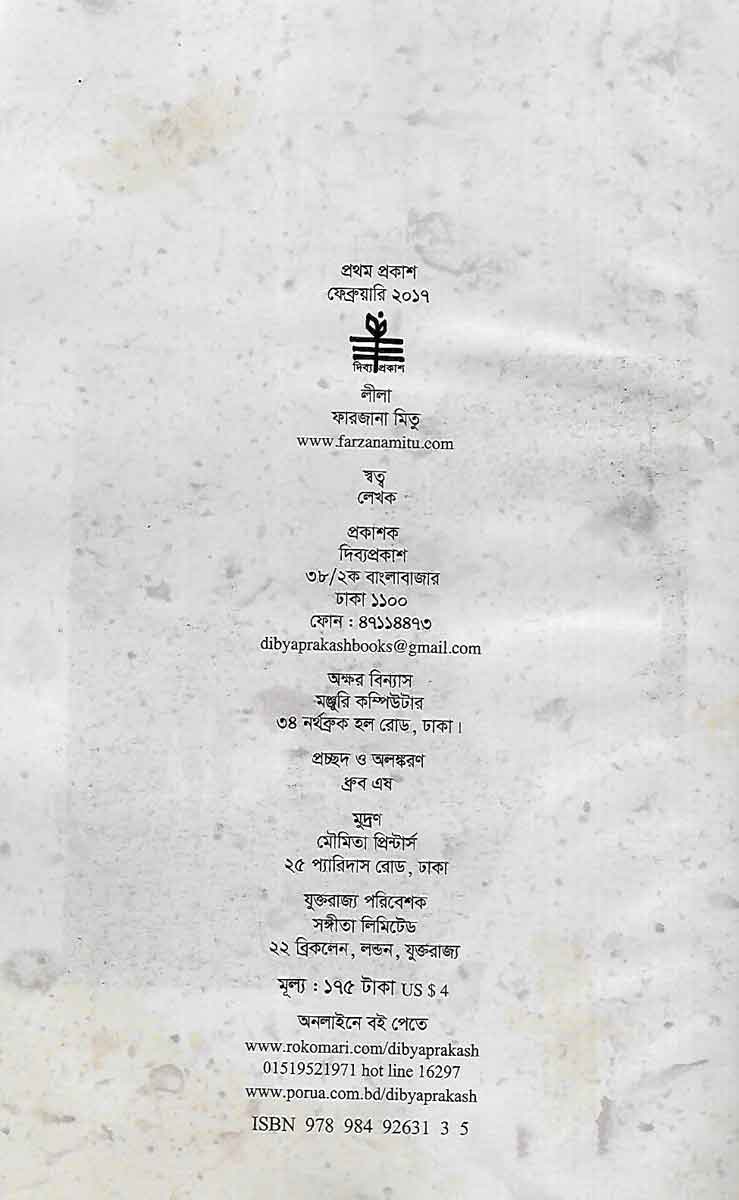 প্রথম প্রকাশ
ফেব্রুয়ারি ২০১৭
দিব্যপ্রকাশ
লীলা
ফারজানা মিতু
www.farzanamitu.com
স্বত্ব
লেখক
প্রকাশক
দিব্যপ্রকাশ
৩৮/২ক বাংলাবাজার
ঢাকা ১১০০
ফোন : ৪৭১১৪৪৭৩
dibyaprakashbooks@gmail.com
অক্ষর বিন্যাস
মঞ্জুরি কম্পিউটার
৩৪ নর্থব্রুক হল রোড, ঢাকা।
প্রচ্ছদ ও অলঙ্করণ
ধ্রুব এষ
মুদ্রণ
মৌমিতা প্রিন্টার্স
২৫ প্যারিদাস রোড, ঢাকা
যুক্তরাজ্য পরিবেশক
সঙ্গীতা লিমিটেড
২২ ব্রিকলেন, লন্ডন, যুক্তরাজ্য
মূল্য : ১৭৫ টাকা US $ 4
অনলাইনে বই পেতে
www.rokomari.com/dibyaprakash
01519521971 hot line 16297
www.porua.com.bd/dibyaprakash
ISBN 978 984 92631 3 5